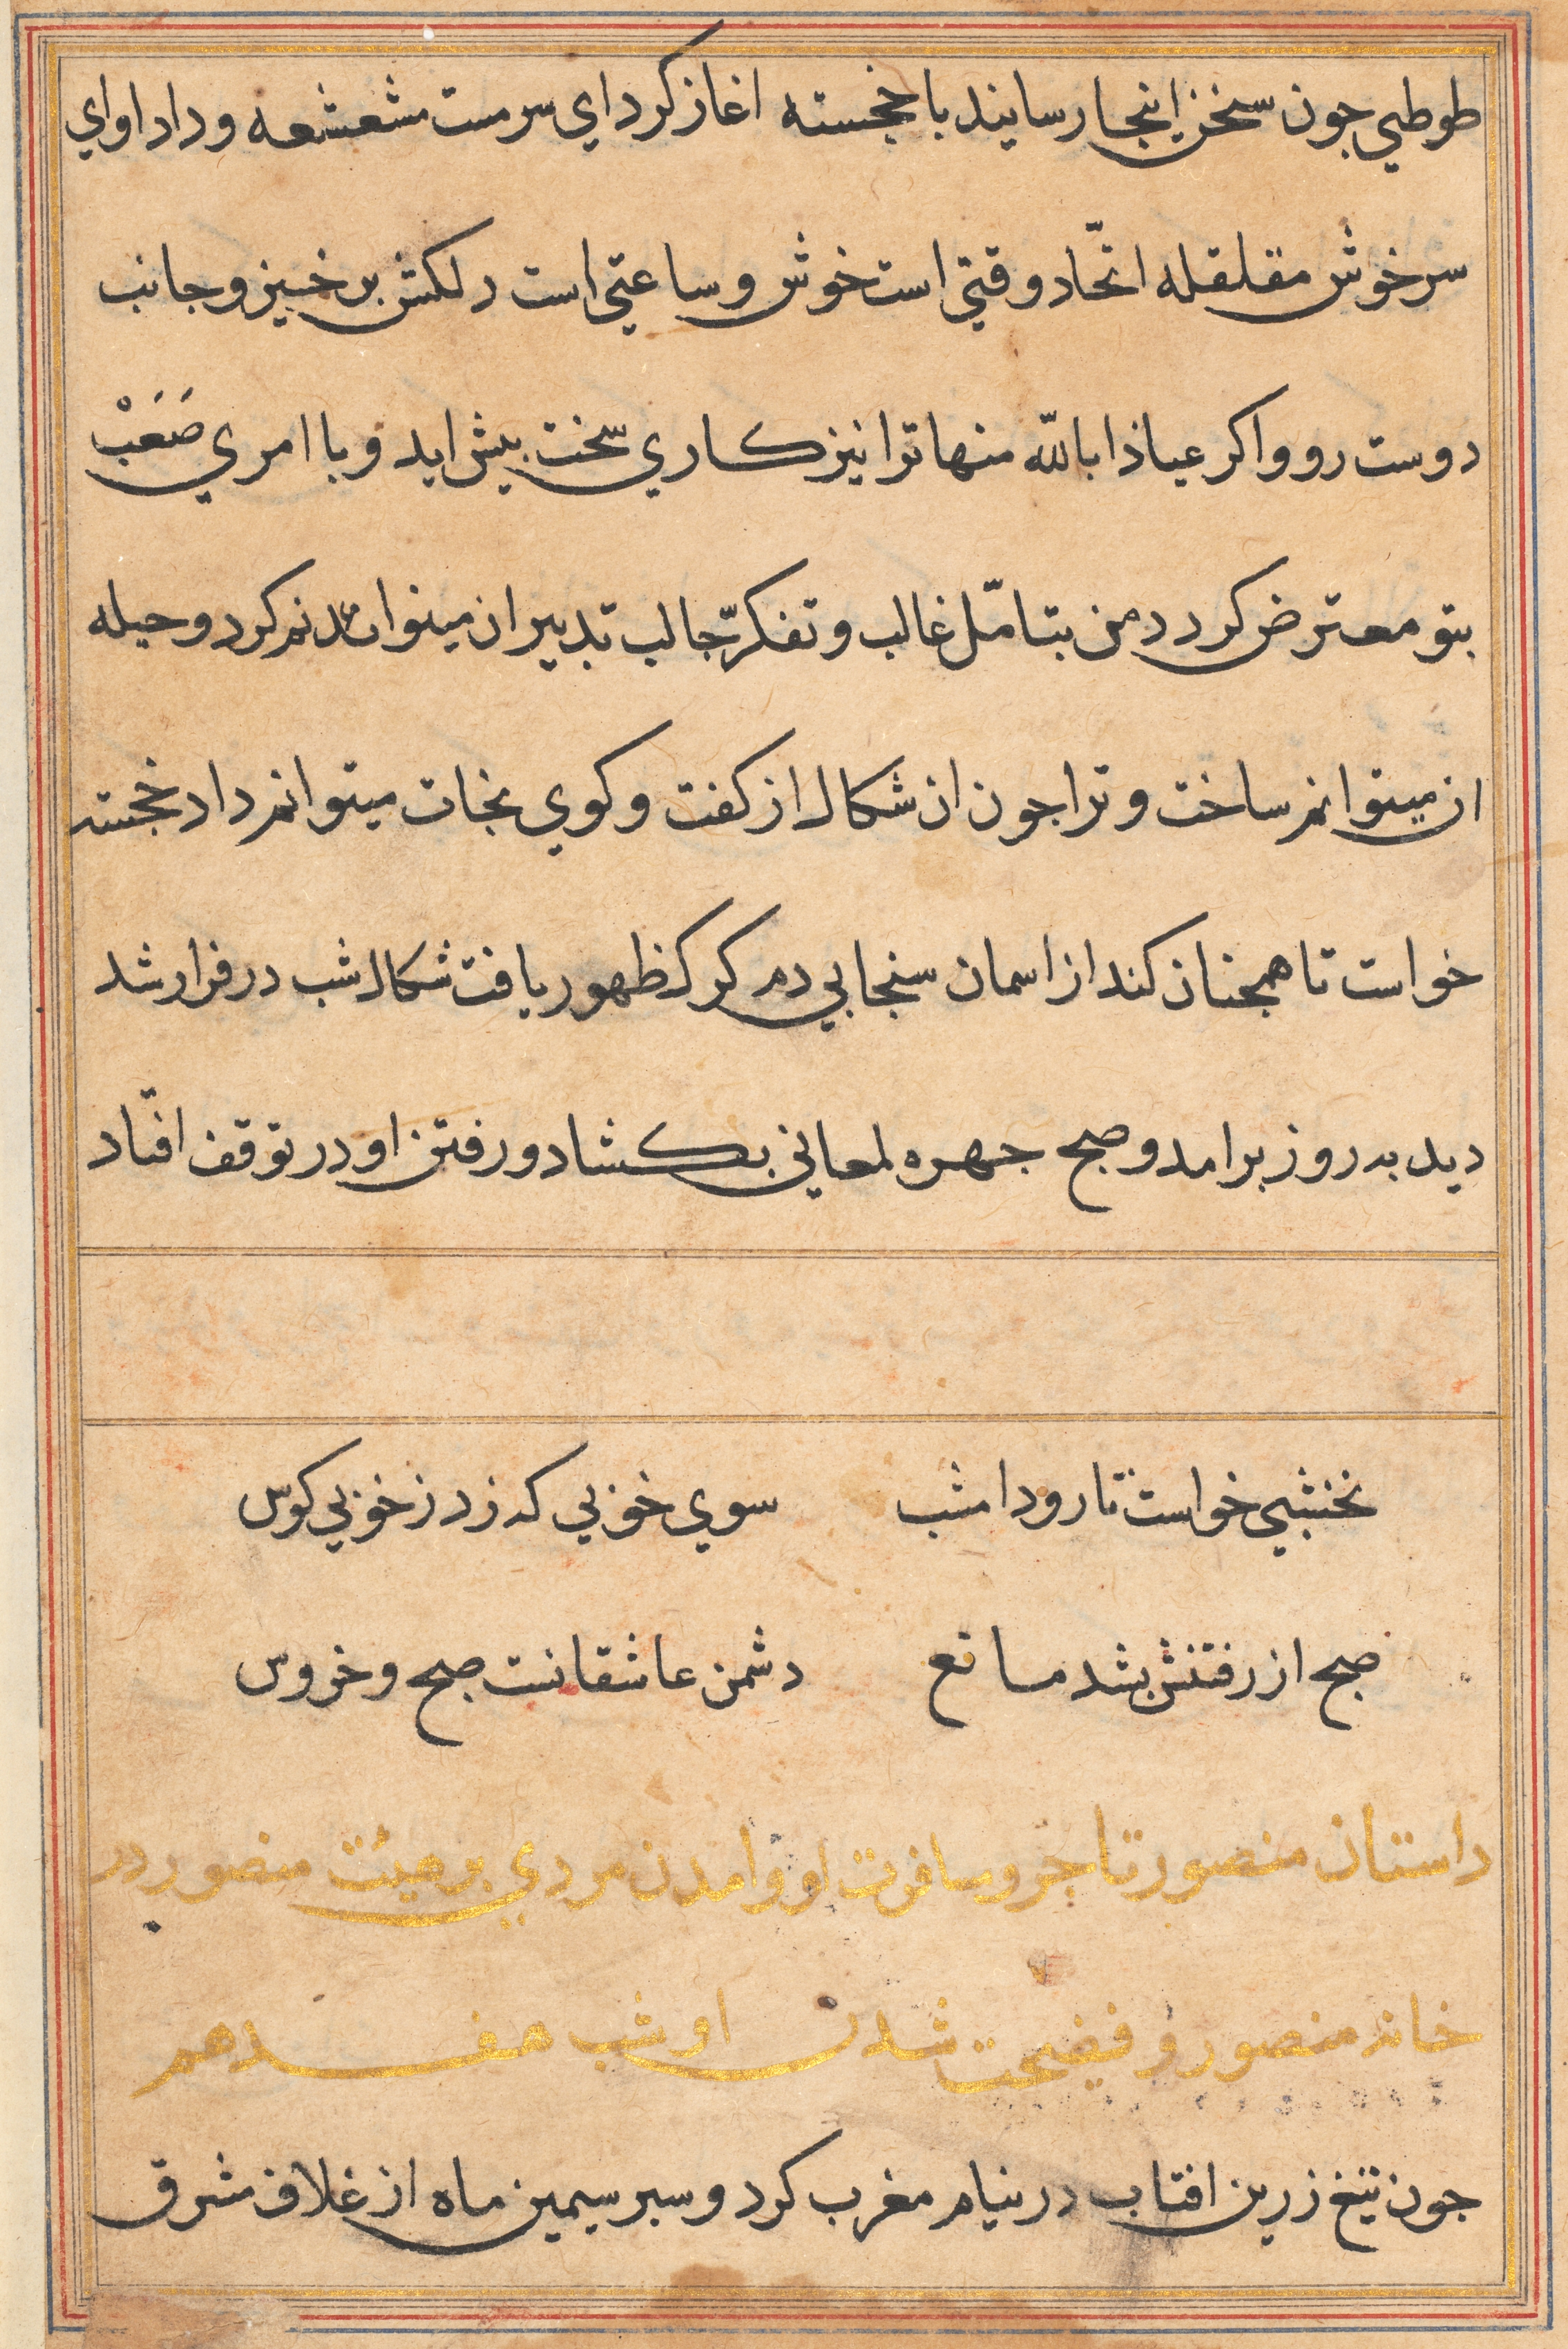 طوطي جون سخن اینجا رسانید با خجسته اغاز کرد اي سرمست مشعشعه وداد اواي
سرخوش مقلقله اتّحاد وقتي است خوش وساعتي است دلکش برخیز وجانب
دوست رو واکر عیاذا بالله منها ترا نیز کاري سخت بیش اید و با امري صَعَبْ
بتو معترض کردد من بتامّل غالب وتفکّر جالب تدبیر ان میتوانم کرد وحیله
ان میتوانم ساخت وترا جون ان شکال از کفت وکوي نجات میتوانم داد خجسته
خواست تا همجنان کند از اسمان سنجابي دم کرک ظهور یافت شکال شب در فرار شد
دیدبه روز برامد وصبح جهره لمعاني بکشاد ورفتن او در توقف افتّاد
نخشبي خواست تا رود امشب سوي خوبي که زد ز خوبي کوس
صبح از رفتنش بشد مانع دشمن عاشقانست صبح وخروس
داستان منصور تاجر ومسافرت او وامدن مردي بر هیئت منصور در
خانه منصور و فضیحت شدن او شب هفدهم
جون تیغ زرین افتاب در نیام مغرب کرد وسبر سیمین ماه از غلاف شرق